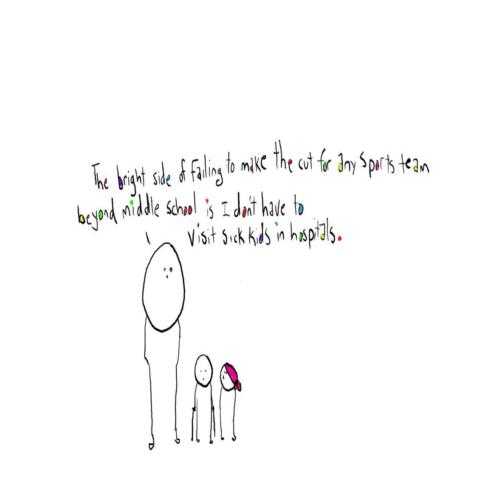 The bright side of Failing to make the cut for any sports team
beyond middle school is I don't have to
visit sick kids in hospitals.